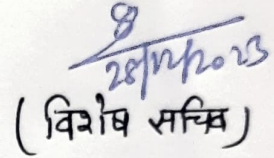 28/12/2023
(विशेष सचिव)